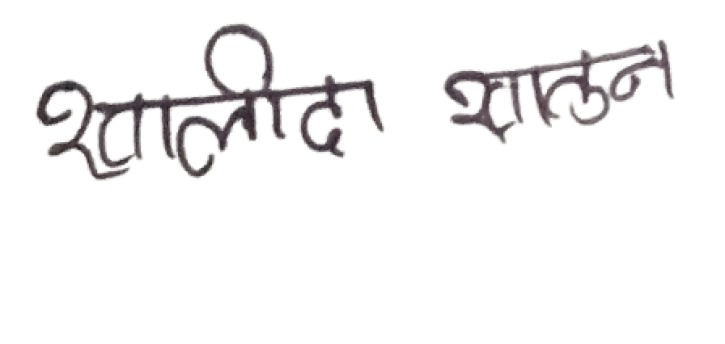 खालीदा खातुन